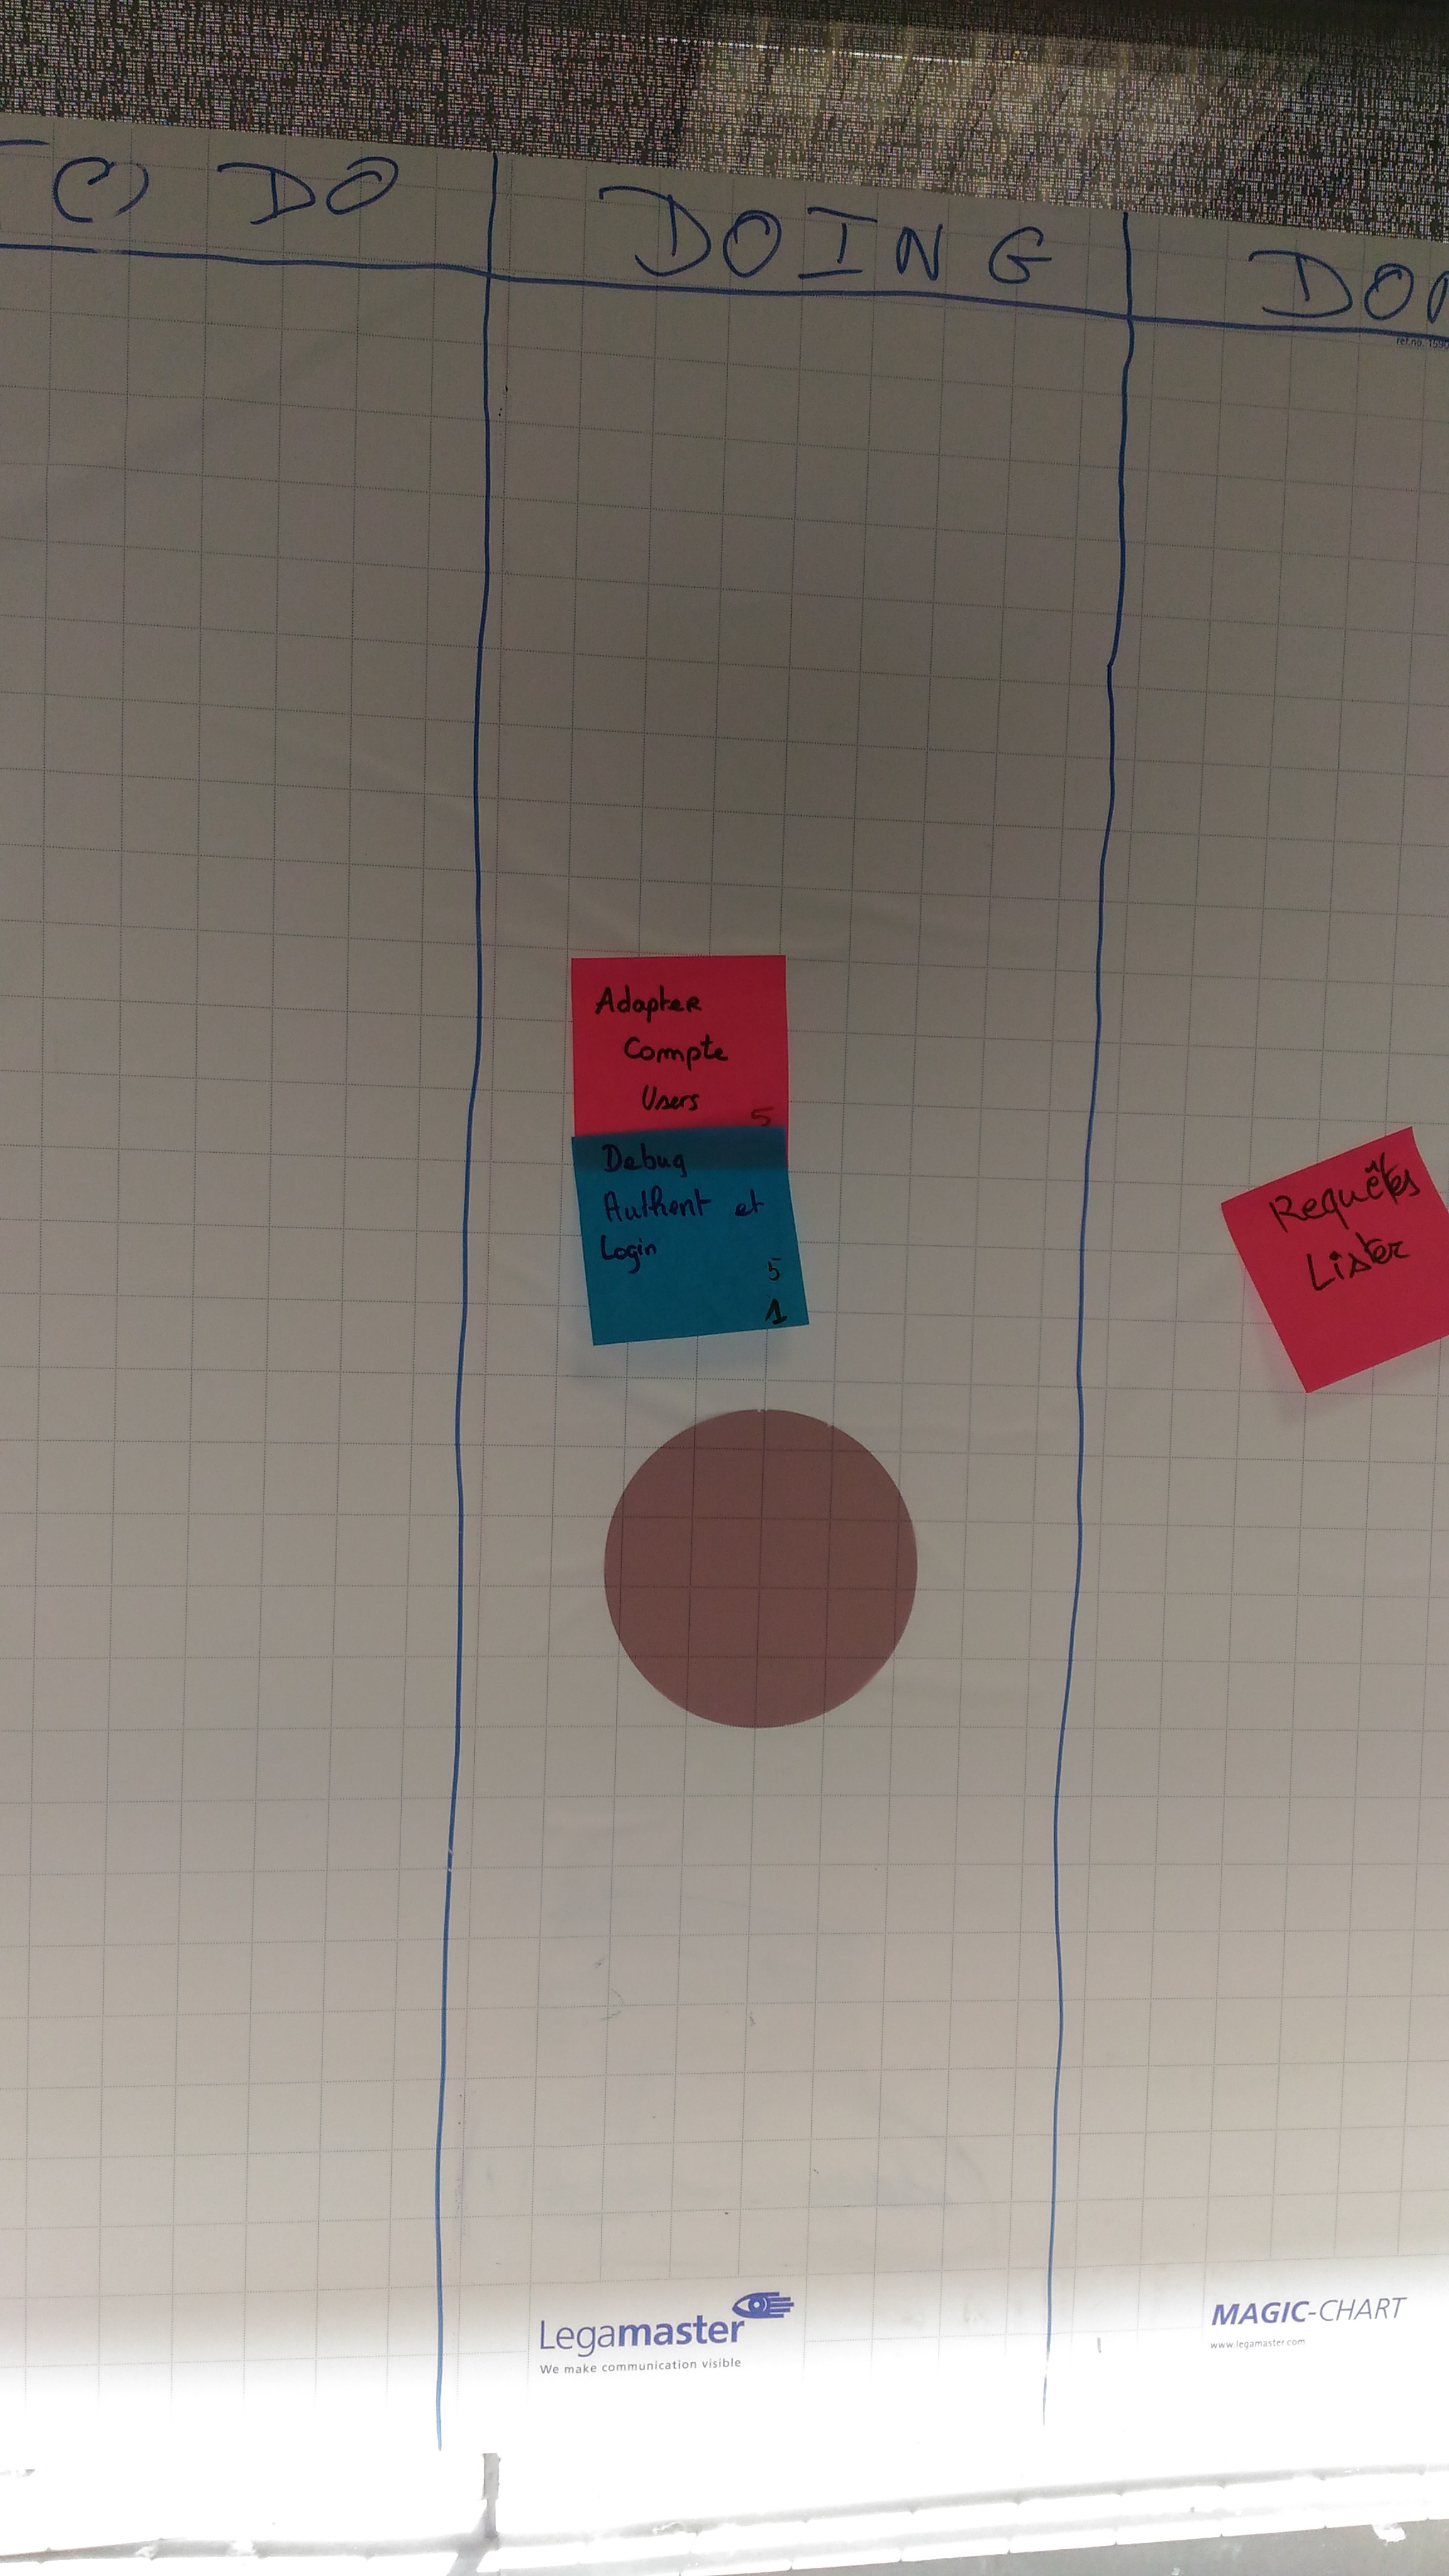 TO DO
DOING
DON
ref.no. 1590
Adapter
Compte
Users
5
Debug
Authent et
Login
5
1
Requêtes
Lister
Legamaster
We make communication visible
MAGIC-CHART
www.legamaster.com